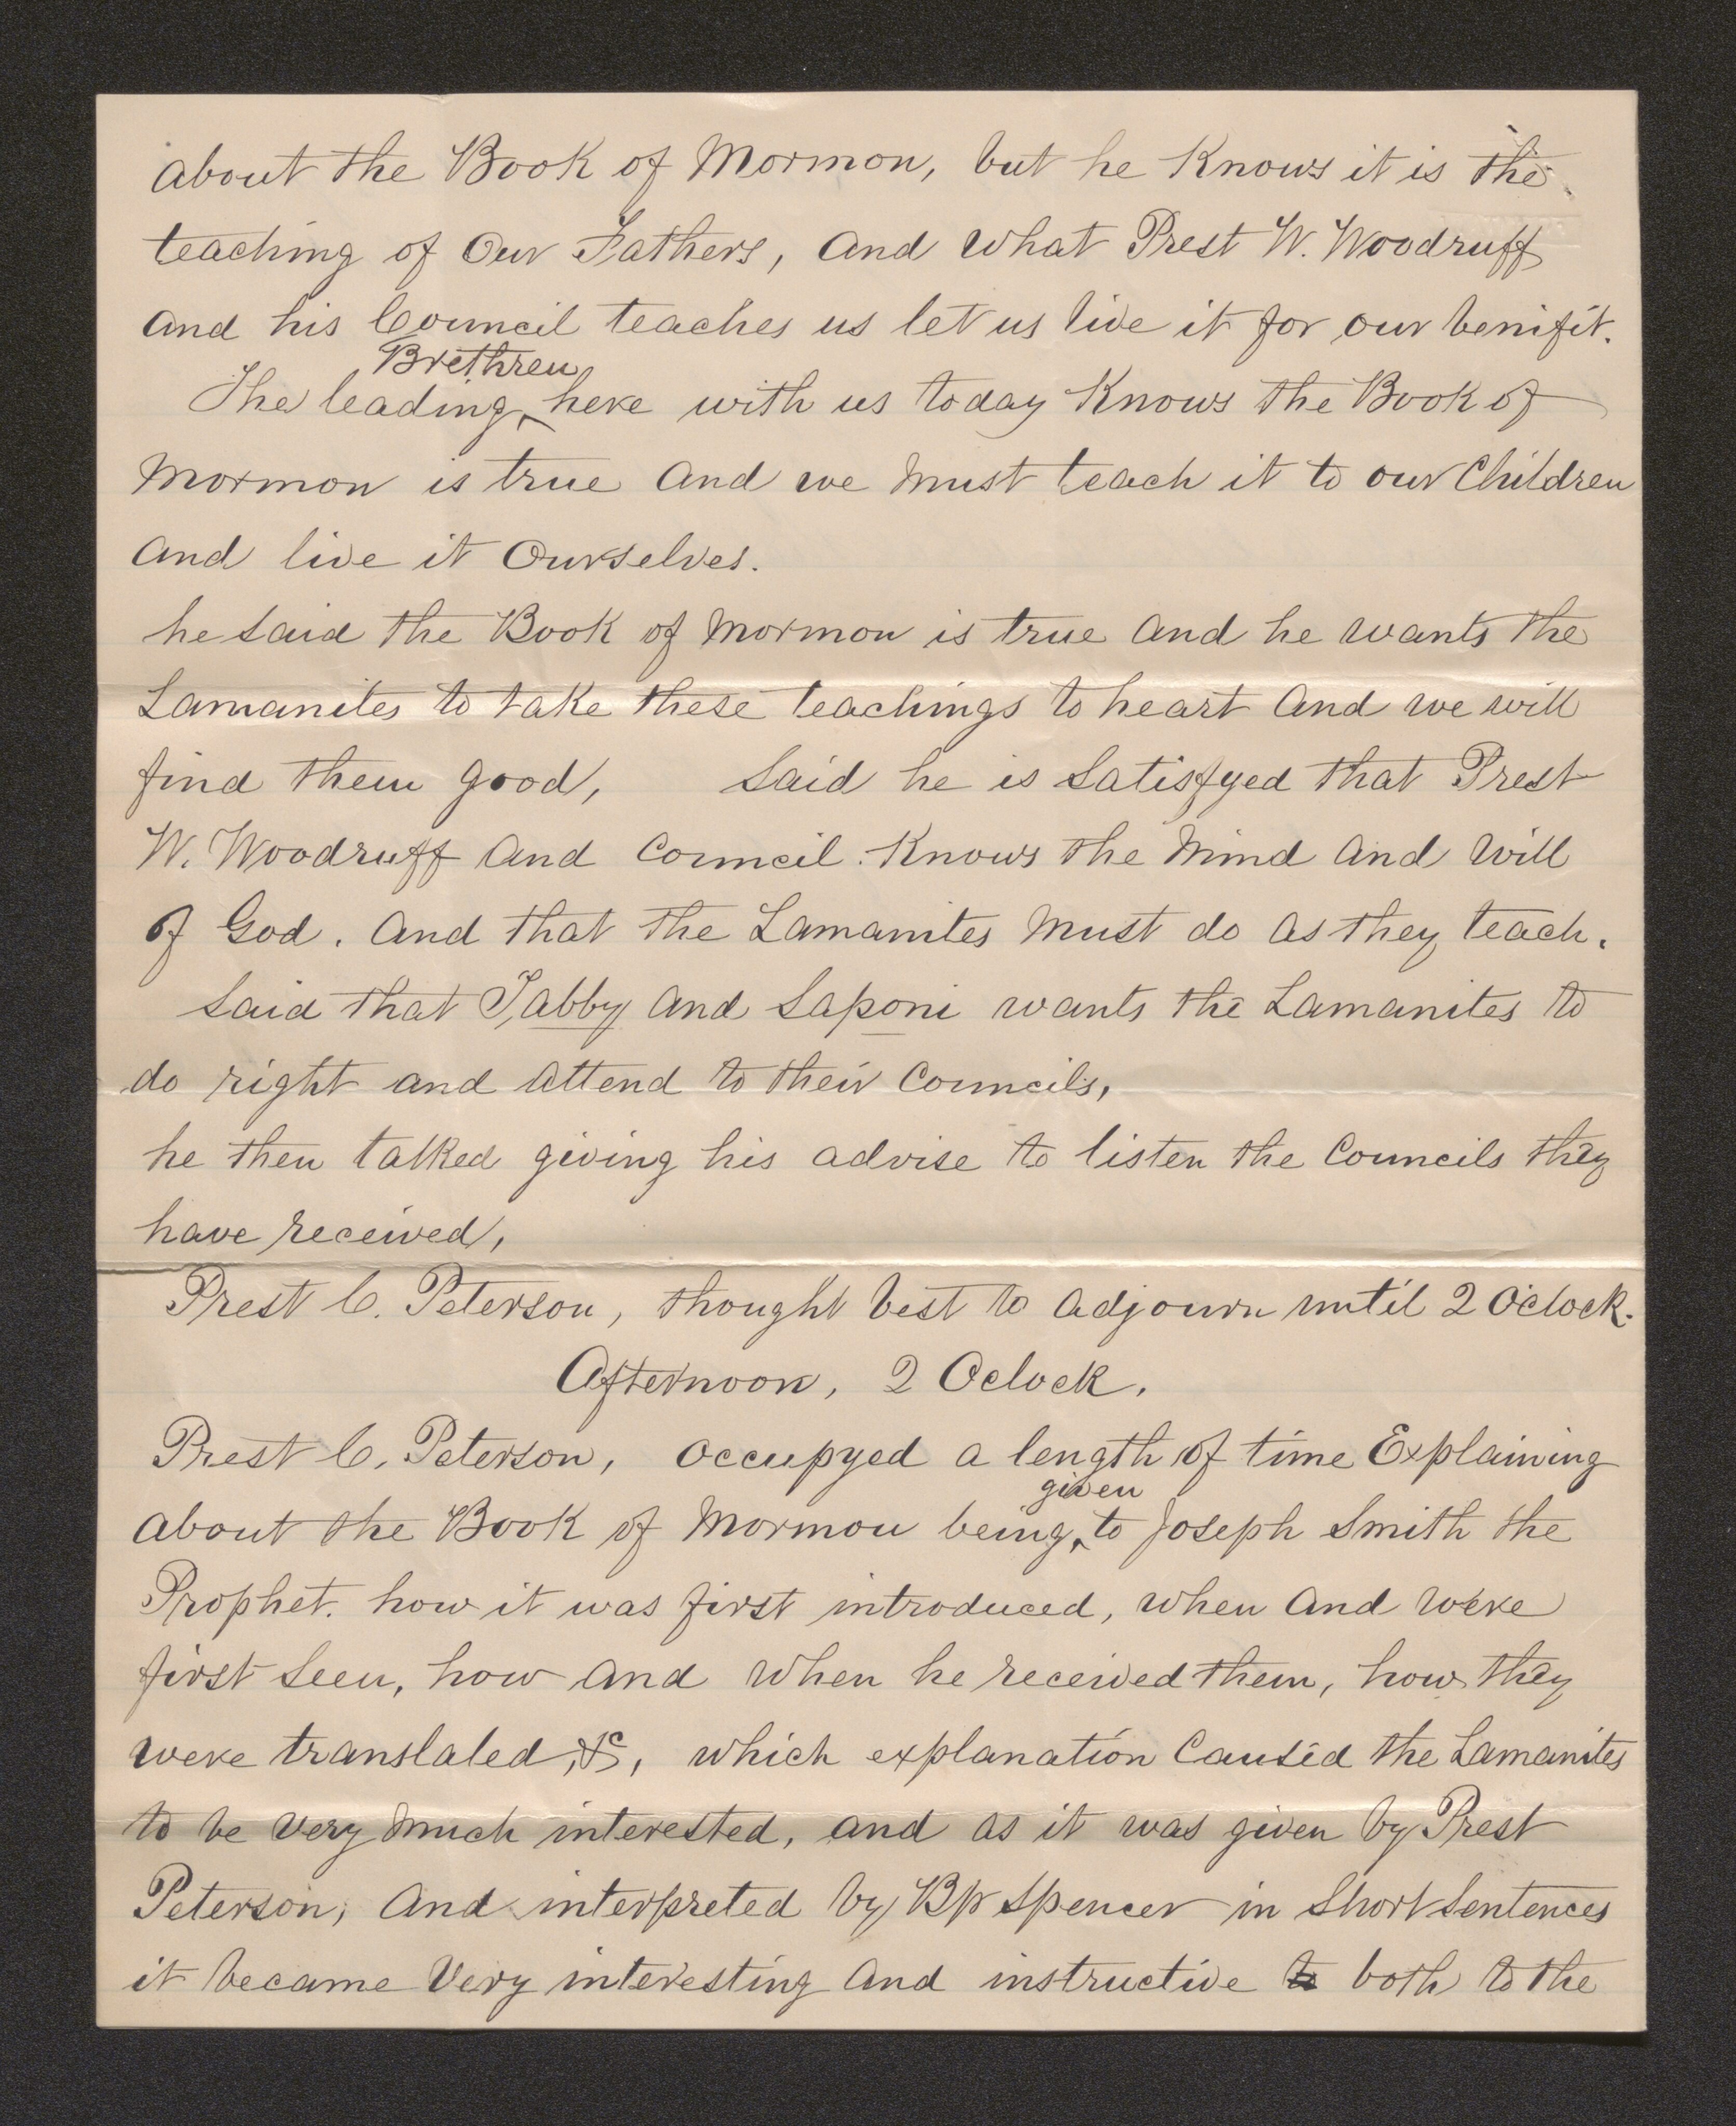 about the Book of Mormon, but he Knows it is the
teaching of Our Fathers, and what Prest W. Woodruff
and his Council teaches us let us live it for our benifit.
Brethren
The leading ‸ here with us today Knows the Book of
Mormon is true and we must teach it to our Children
and live it Ourselves.
he said the Book of Mormon is true and he wants the
Lamanites to take these teachings to heart and we will
find them good, said he is satisfyed that Prest
W. Woodruff and Council. Knows the mind and will
of God. and that the Lamanites must do as they teach.
said that Tabby and Saponi wants the Lamanites to
do right and attend to their Councils,
he then talked giving his advise to listen the Councils they
have received,
Prest C. Peterson, thought best to adjourn until 2 O'clock.
Afternoon, 2 Oclock.
Prest C. Peterson, occupyed a length of time Explaining
given
about the Book of Mormon being ‸ to Joseph Smith the
Prophet. how it was first introduced, when and were
first seen, how and when he received them, how they
were translated, &c, which explanation caused the Lamanites
to be very much interested, and as it was given by Prest
Peterson, and interpreted by Bp Spencer in short sentences
it became very interesting and instructive to both to the